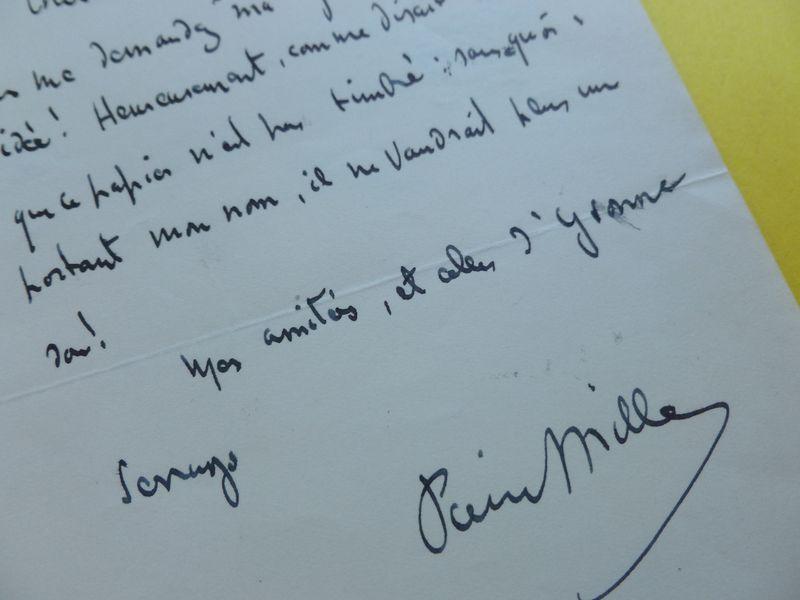 me demandez ma
idée! Heureusement, comme disait
que ce papier n'est pas timbré: sans quoi,
portant mon nom, il ne vaudrait plus un
sou!
Mes amitiés, et celles d'Yvonne
Pierre Mille